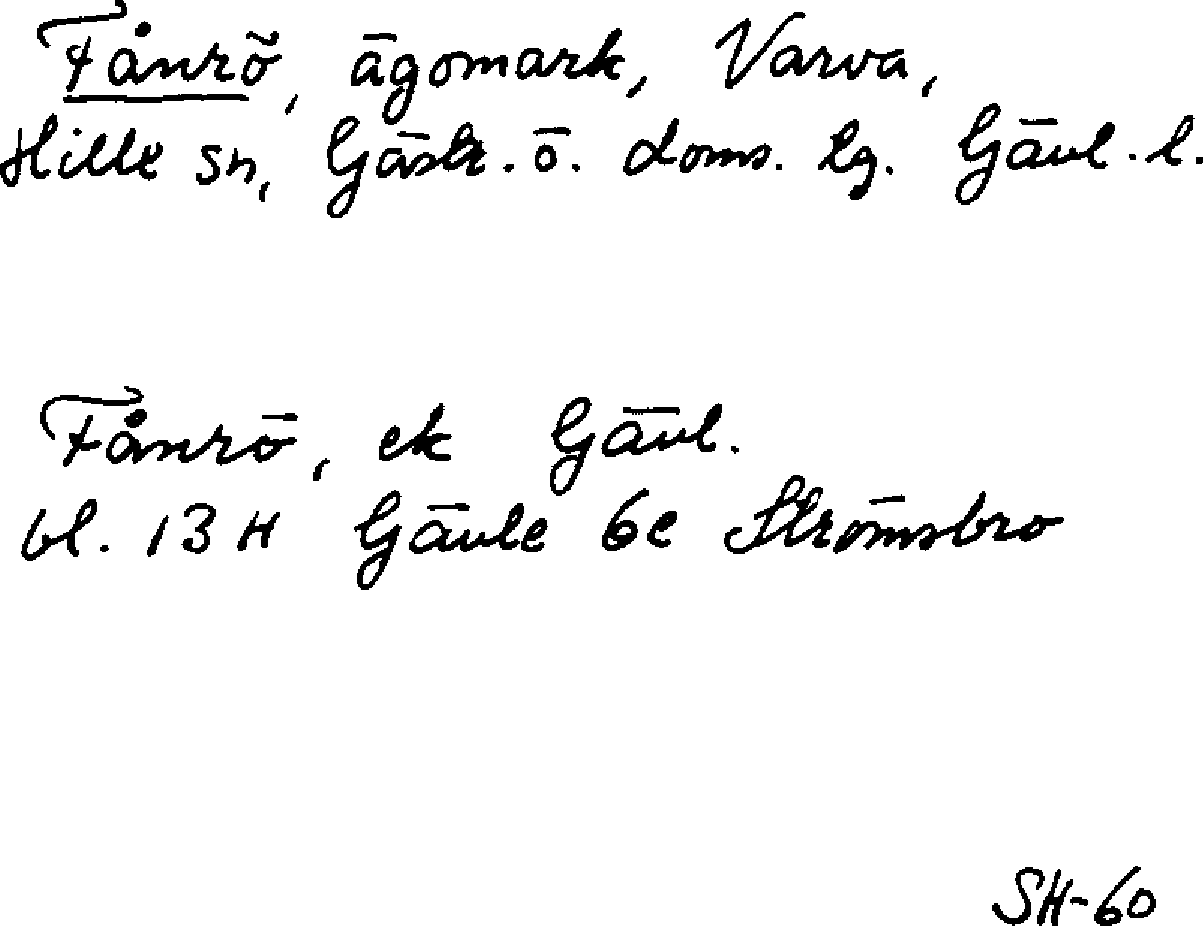 Fånrö, ägomark, Varva,
Hille sn, Gästr. ö. doms. lg. Gävl. l.
Fånrö, ek Gävl.
bl. 13 H Gävle 6e Strömsbro
SH-60